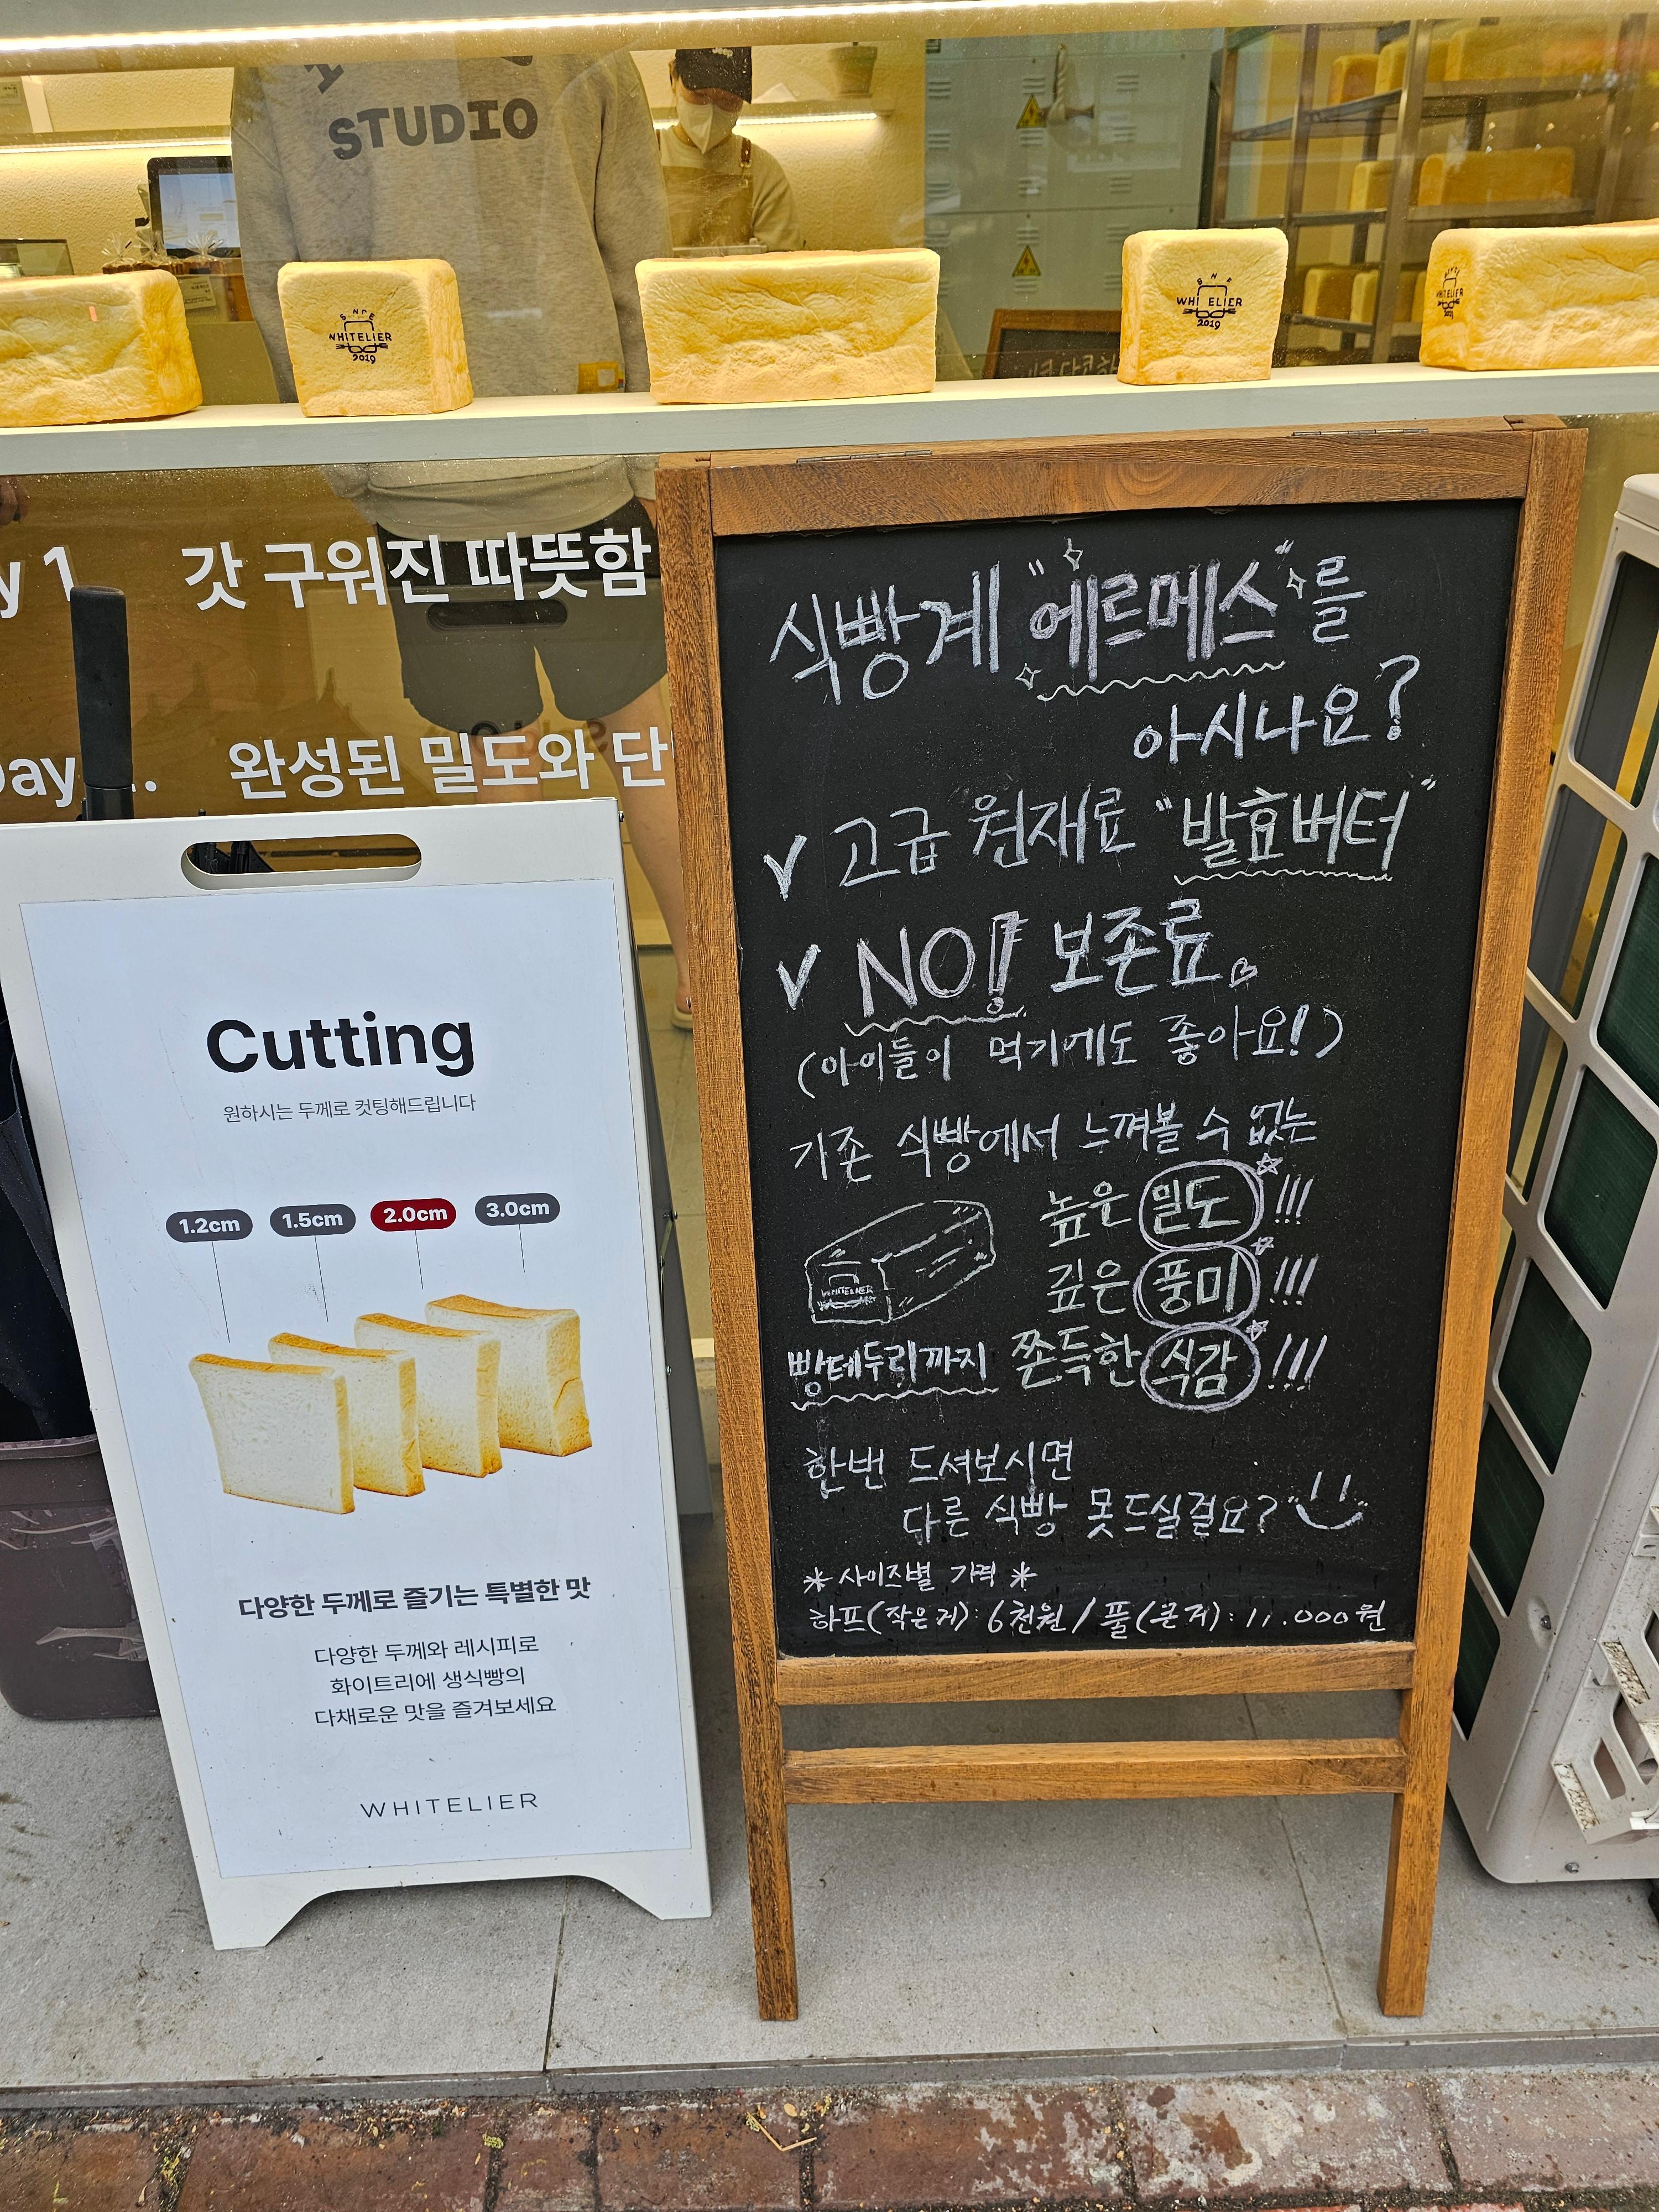 STUDIO
SINCE
WHITELIER
2019
SINCE
WHITELIER
2019
WHITELIER
갓 구워진 따뜻함
완성된 밀도와 단
Cutting
원하시는 두께로 컷팅해드립니다
1.2cm 1.5cm 2.0cm 3.0cm
다양한 두께로 즐기는 특별한 맛
다양한 두께와 레시피로
화이트리에 생식빵의
다채로운 맛을 즐겨보세요
WHITELIER
식빵계 "에르메스"를
아시나요?
✓ 고급 원재료 "발효버터"
✓ NO! 보존료.
(아이들이 먹기에도 좋아요!)
기존 식빵에서 느껴볼 수 없는
높은 밀도 !!!
깊은 풍미 !!!
WHITELIER
빵테두리까지 쫀득한 식감 !!!
한번 드셔보시면
다른 식빵 못드실걸요?
* 사이즈별 가격 *
하프(작은거): 6천원 / 풀(큰거): 11.000원